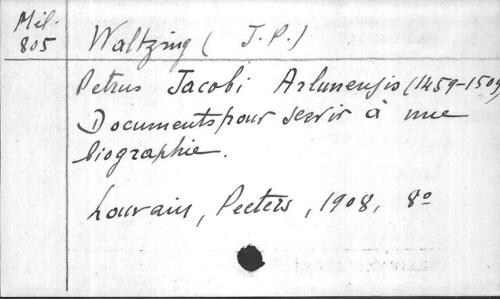 Mil.
805
Waltzing ( J.P.)
Petrus Jacobi Arlunensis (1459-1509)
Documents pour servir à une
biographie.
Louvain, Peeters, 1908, 8º